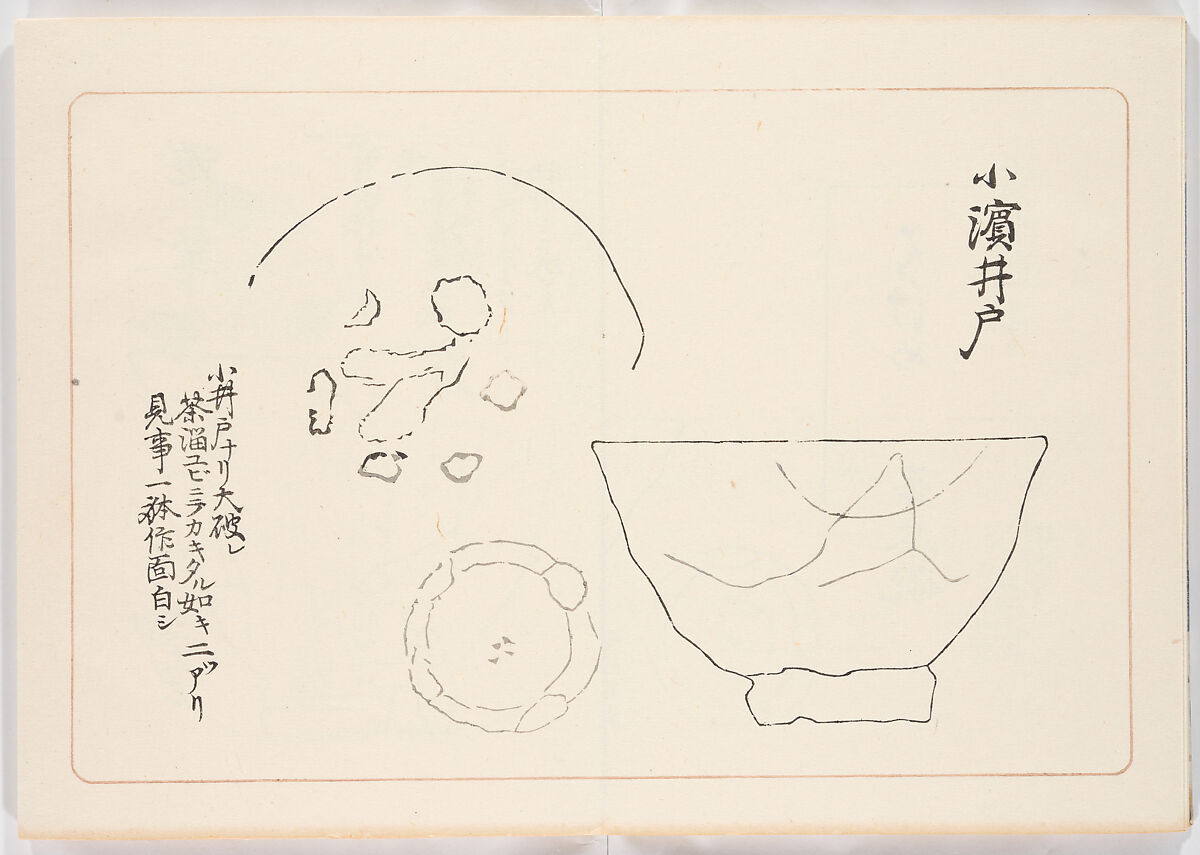 小濱井戸
小井戸ナリ大破レ
茶溜ユビニテカキタル如キ二ツアリ
見事一体作面白シ